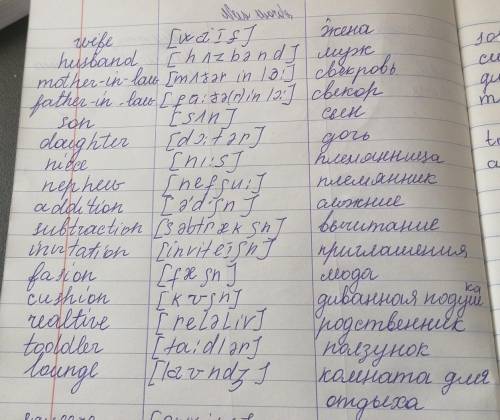 New words
wife [waif] жена
husband [hʌzbənd] муж
mother-in-law [mʌзər in lɔ:] свекровь
father-in-law [fa:зə(r) in lɔ:] свекор
son [sʌn] сын
daughter [dɔ:tər] дочь
niece [ni:s] племянница
nephew [nefju:] племянник
addition [ədiʃn] сложение
subtraction [səbtrækʃn] вычитание
invitation [inviteiʃn] приглашения
fasion [fæʃn] мода
cushion [kʊʃn] диванная подушка
realtive [relətiv] родственник
tooldler ползунок
lounge [laʊndʒ] комната для
отдыха